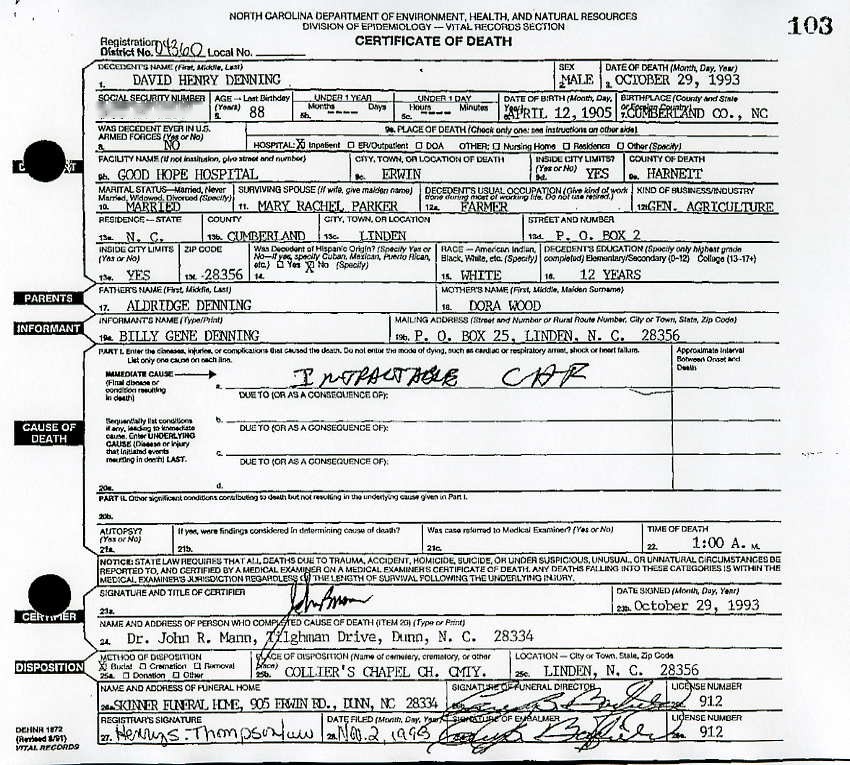 NORTH CAROLINA DEPARTMENT OF ENVIRONMENT, HEALTH, AND NATURAL RESOURCES
DIVISION OF EPIDEMIOLOGY — VITAL RECORDS SECTION
103
CERTIFICATE OF DEATH
Registration District No. 04360 Local No.
DECEDENT'S NAME (First, Middle, Last) SEX DATE OF DEATH (Month, Day, Year)
1. DAVID HENRY DENNING 2. MALE 3. OCTOBER 29, 1993
SOCIAL SECURITY NUMBER AGE — Last Birthday (Years) UNDER 1 YEAR Months Days UNDER 1 DAY Hours Minutes DATE OF BIRTH (Month, Day, Year) BIRTHPLACE (County and State or Foreign Country)
5a. 88 5b. --- 5c. --- 6. APRIL 12, 1905 7. CUMBERLAND CO., NC
WAS DECEDENT EVER IN U.S. ARMED FORCES (Yes or No) 9a. PLACE OF DEATH (Check only one: see instructions on other side)
8. NO HOSPITAL: X Inpatient ER/Outpatient DOA OTHER: Nursing Home Residence Other (Specify)
FACILITY NAME (If not institution, give street and number) CITY, TOWN, OR LOCATION OF DEATH INSIDE CITY LIMITS? (Yes or No) COUNTY OF DEATH
9b. GOOD HOPE HOSPITAL 9c. ERWIN 9d. YES 9e. HARNETT
MARITAL STATUS—Married, Never Married, Widowed, Divorced (Specify) SURVIVING SPOUSE (If wife, give maiden name) DECEDENT'S USUAL OCCUPATION (Give kind of work done during most of working life. Do not use retired.) KIND OF BUSINESS/INDUSTRY
10. MARRIED 11. MARY RACHEL PARKER 12a. FARMER 12b. GEN. AGRICULTURE
RESIDENCE — STATE COUNTY CITY, TOWN, OR LOCATION STREET AND NUMBER
13a. N. C. 13b. CUMBERLAND 13c. LINDEN 13d. P. O. BOX 2
INSIDE CITY LIMITS (Yes or No) ZIP CODE Was Decedent of Hispanic Origin? (Specify Yes or No—If yes, specify Cuban, Mexican, Puerto Rican, etc.) Yes X No (Specify) RACE — American Indian, Black, White, etc. (Specify) DECEDENT'S EDUCATION (Specify only highest grade completed) Elementary/Secondary (0-12) College (13-17+)
13e. YES 13f. 28356 14. 15. WHITE 16. 12 YEARS
PARENTS
FATHER'S NAME (First, Middle, Last) MOTHER'S NAME (First, Middle, Maiden Surname)
17. ALDRIDGE DENNING 18. DORA WOOD
INFORMANT
INFORMANT'S NAME (Type/Print) MAILING ADDRESS (Street and Number or Rural Route Number, City or Town, State, Zip Code)
19a. BILLY GENE DENNING 19b. P. O. BOX 25, LINDEN, N. C. 28356
PART I. Enter the diseases, injuries, or complications that caused the death. Do not enter the mode of dying, such as cardiac or respiratory arrest, shock or heart failure. List only one cause on each line. Approximate Interval Between Onset and Death
IMMEDIATE CAUSE (Final disease or condition resulting in death) a. INTRACTABLE CHF
DUE TO (OR AS A CONSEQUENCE OF):
CAUSE OF DEATH
Sequentially list conditions if any, leading to immediate cause. Enter UNDERLYING CAUSE (Disease or injury that initiated events resulting in death) LAST.
b.
DUE TO (OR AS A CONSEQUENCE OF):
c.
DUE TO (OR AS A CONSEQUENCE OF):
20a. d.
PART II. Other significant conditions contributing to death but not resulting in the underlying cause given in Part I.
20b.
AUTOPSY? (Yes or No) If yes, were findings considered in determining cause of death? Was case referred to Medical Examiner? (Yes or No) TIME OF DEATH
21a. 21b. 21c. 22. 1:00 A. M.
NOTICE: STATE LAW REQUIRES THAT ALL DEATHS DUE TO TRAUMA, ACCIDENT, HOMICIDE, SUICIDE, OR UNDER SUSPICIOUS, UNUSUAL, OR UNNATURAL CIRCUMSTANCES BE
REPORTED TO, AND CERTIFIED BY A MEDICAL EXAMINER ON A MEDICAL EXAMINER'S CERTIFICATE OF DEATH. ANY DEATHS FALLING INTO THESE CATEGORIES IS WITHIN THE
MEDICAL EXAMINER'S JURISDICTION REGARDLESS OF THE LENGTH OF SURVIVAL FOLLOWING THE UNDERLYING INJURY.
CERTIFIER
SIGNATURE AND TITLE OF CERTIFIER DATE SIGNED (Month, Day, Year)
23a. John R Mann 23b. October 29, 1993
NAME AND ADDRESS OF PERSON WHO COMPLETED CAUSE OF DEATH (ITEM 20) (Type or Print)
24. Dr. John R. Mann, Tilghman Drive, Dunn, N. C. 28334
DISPOSITION
METHOD OF DISPOSITION PLACE OF DISPOSITION (Name of cemetery, crematory, or other place) LOCATION — City or Town, State, Zip Code
X Burial Cremation Removal
25a. Donation Other 25b. COLLIER'S CHAPEL CH. CMTY. 25c. LINDEN, N. C. 28356
NAME AND ADDRESS OF FUNERAL HOME SIGNATURE OF FUNERAL DIRECTOR LICENSE NUMBER
26a. SKINNER FUNERAL HOME, 905 ERWIN RD., DUNN, NC 28334 912
REGISTRAR'S SIGNATURE DATE FILED (Month, Day, Year) SIGNATURE OF EMBALMER LICENSE NUMBER
27. Henry S. Thompson/uw 28. Nov. 2, 1993 912
DEHNR 1872
(Revised 8/91)
VITAL RECORDS